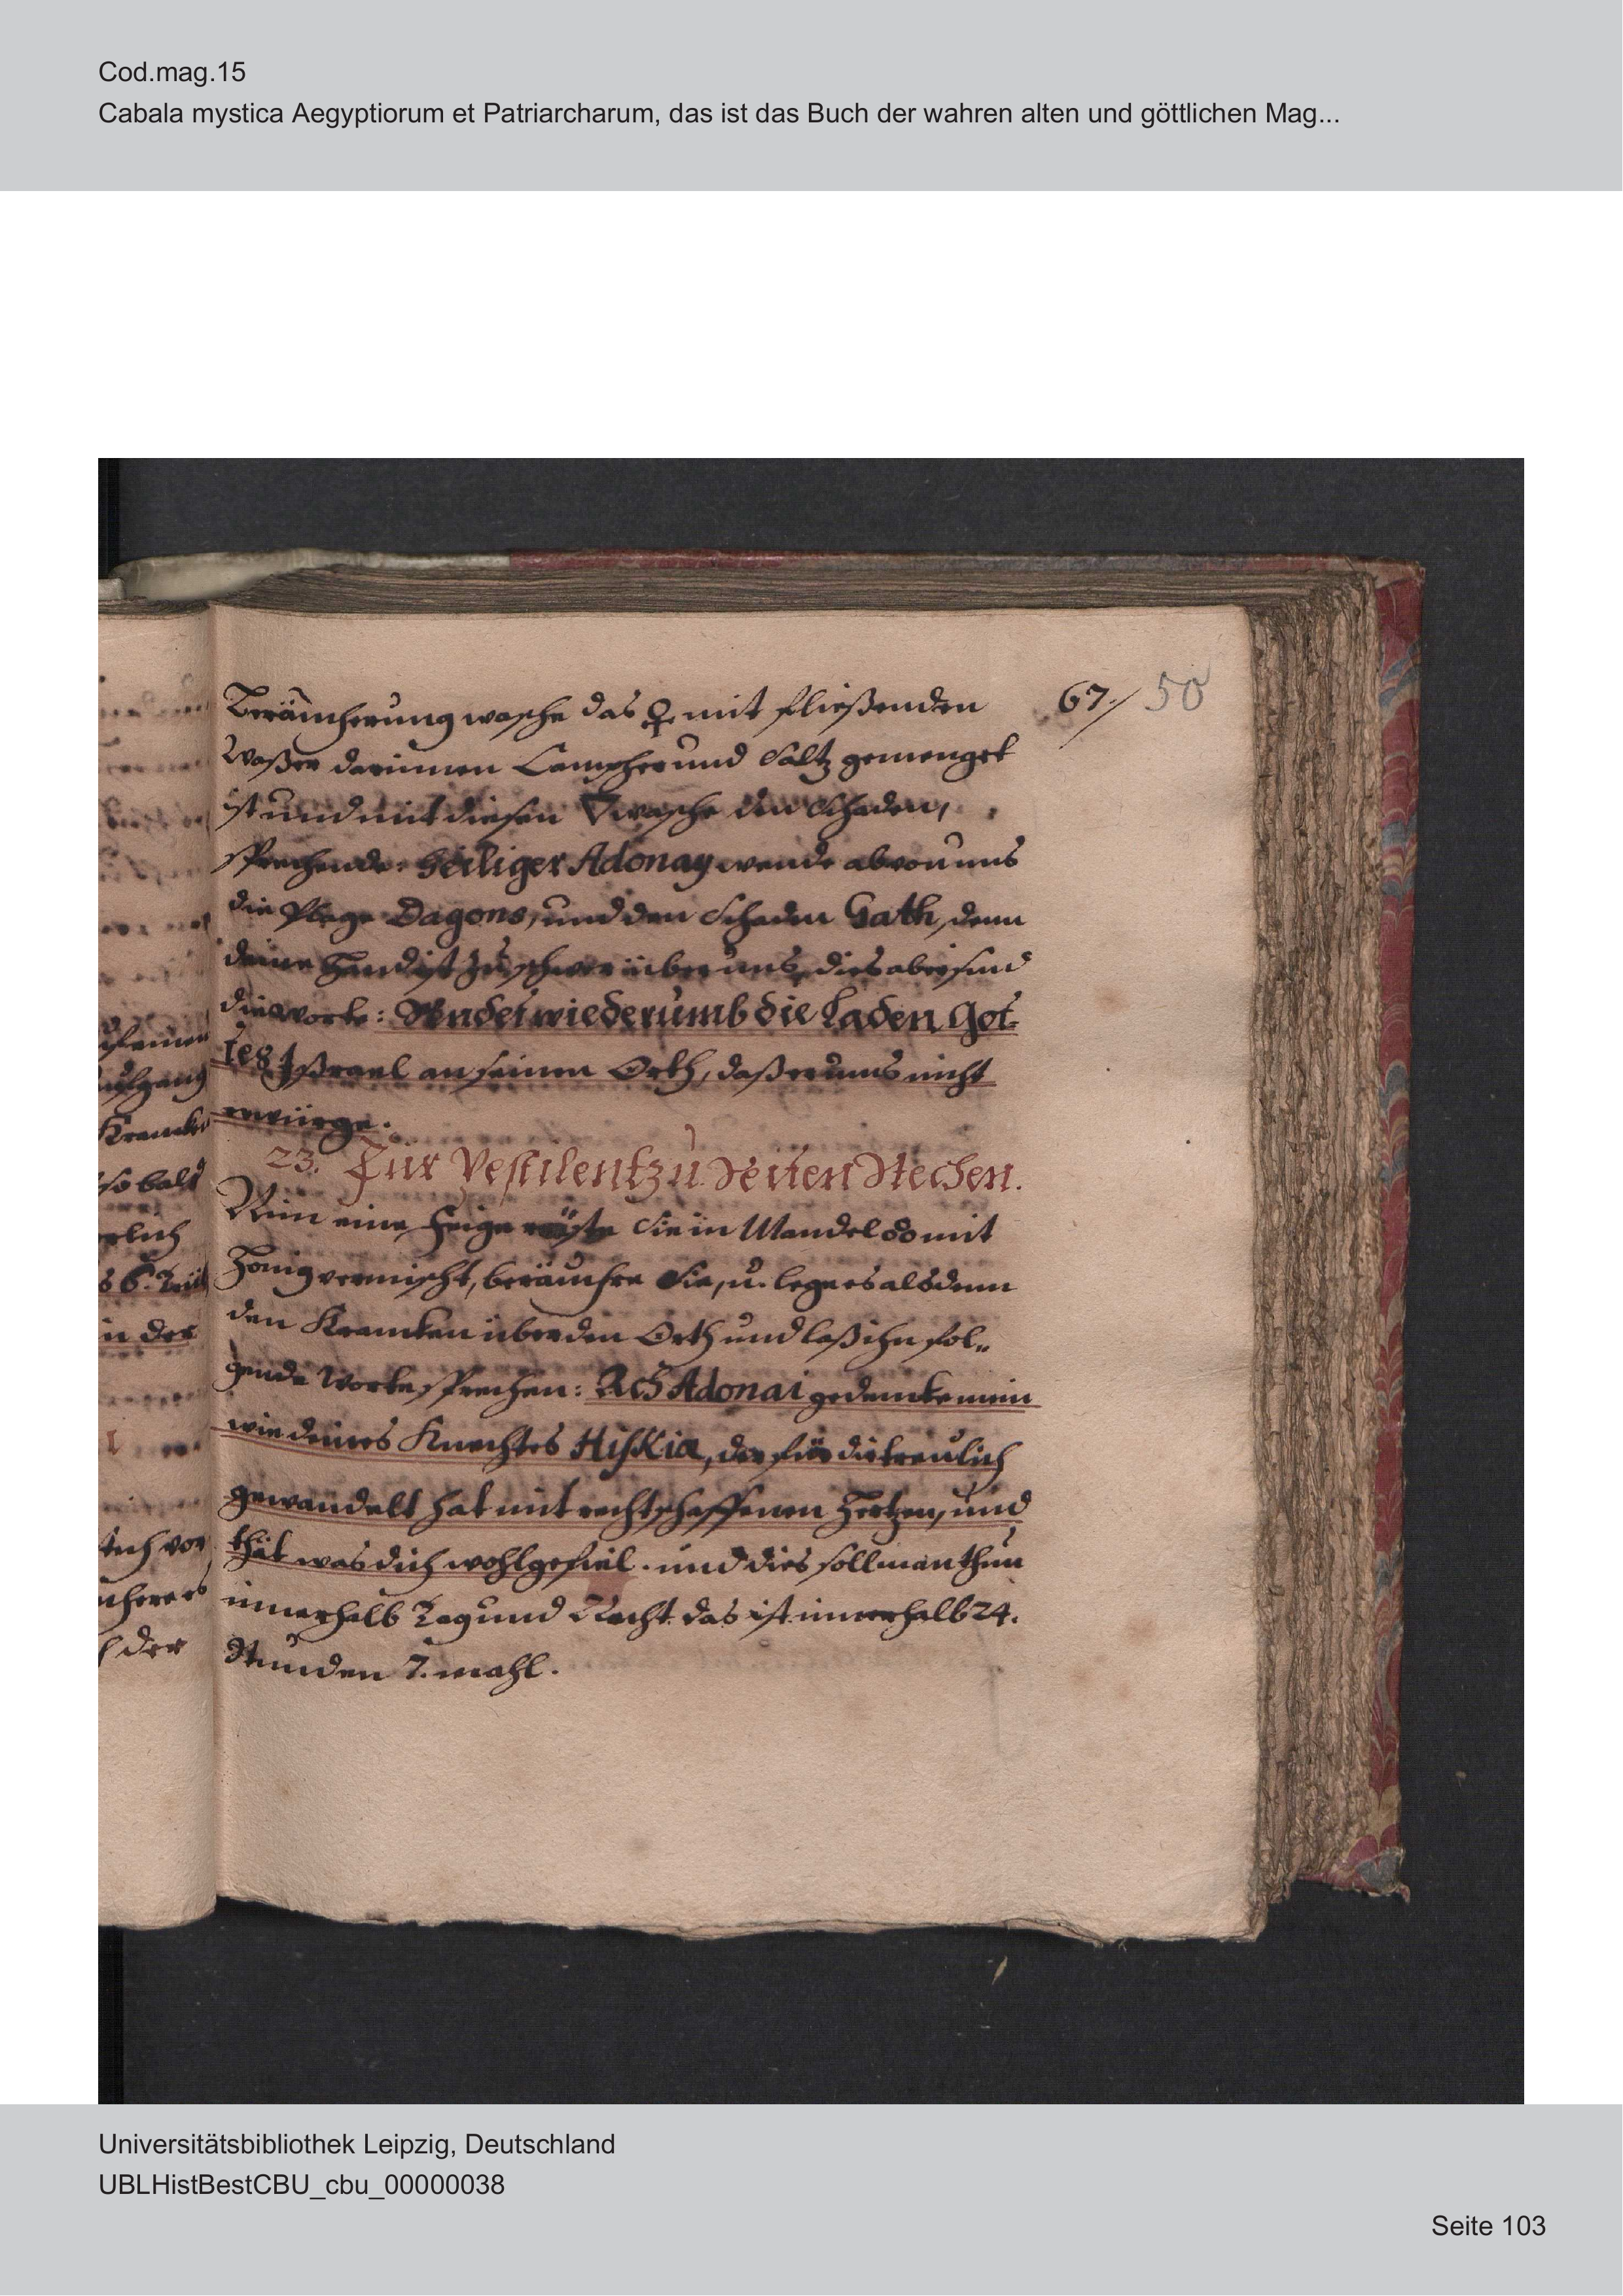 Cod.mag.15
Cabala mystica Aegyptiorum et Patriarcharum, das ist das Buch der wahren alten und göttlichen Mag...
67./ 50
Beräucherung wasche das ♀ mit fließenden
Waßer darinnen Campher und Saltz gemenget
ist und mit diesen 🜄 wasche den Schaden,
sprechende: Heiliger Adonay wende ab von uns
die Plage Dagons, und den Schaden Gath, denn
deine Hand ist zu schwer über uns, dies aber sind
die Worte: Sendet wiederumb die Laden Got-
tes Jßrael an seinen Orth, daß er uns nicht
erwürge.
23. Für Pestilentz u. Seiten Stechen.
Nim eine Feige röste Sie in Mandel o̊o mit
Honig vermischt, beräuchre Sie, u. lege es alsdenn
den Krancken über den Orth und laß ihn fol„
gende Worte sprechen: Ach Adonai gedencke mein
wie deines Knechtes Hiskia, der für dir treulich
gewandelt hat mit rechtschaffenen Hertzen, und
thät was dich wohlgefiel. und dies soll man thun
innerhalb Tag und Nacht das ist innerhalb 24.
Stunden 7. mahl.
Krancke
so bald
in der
der
Universitätsbibliothek Leipzig, Deutschland
UBLHistBestCBU_cbu_00000038
Seite 103